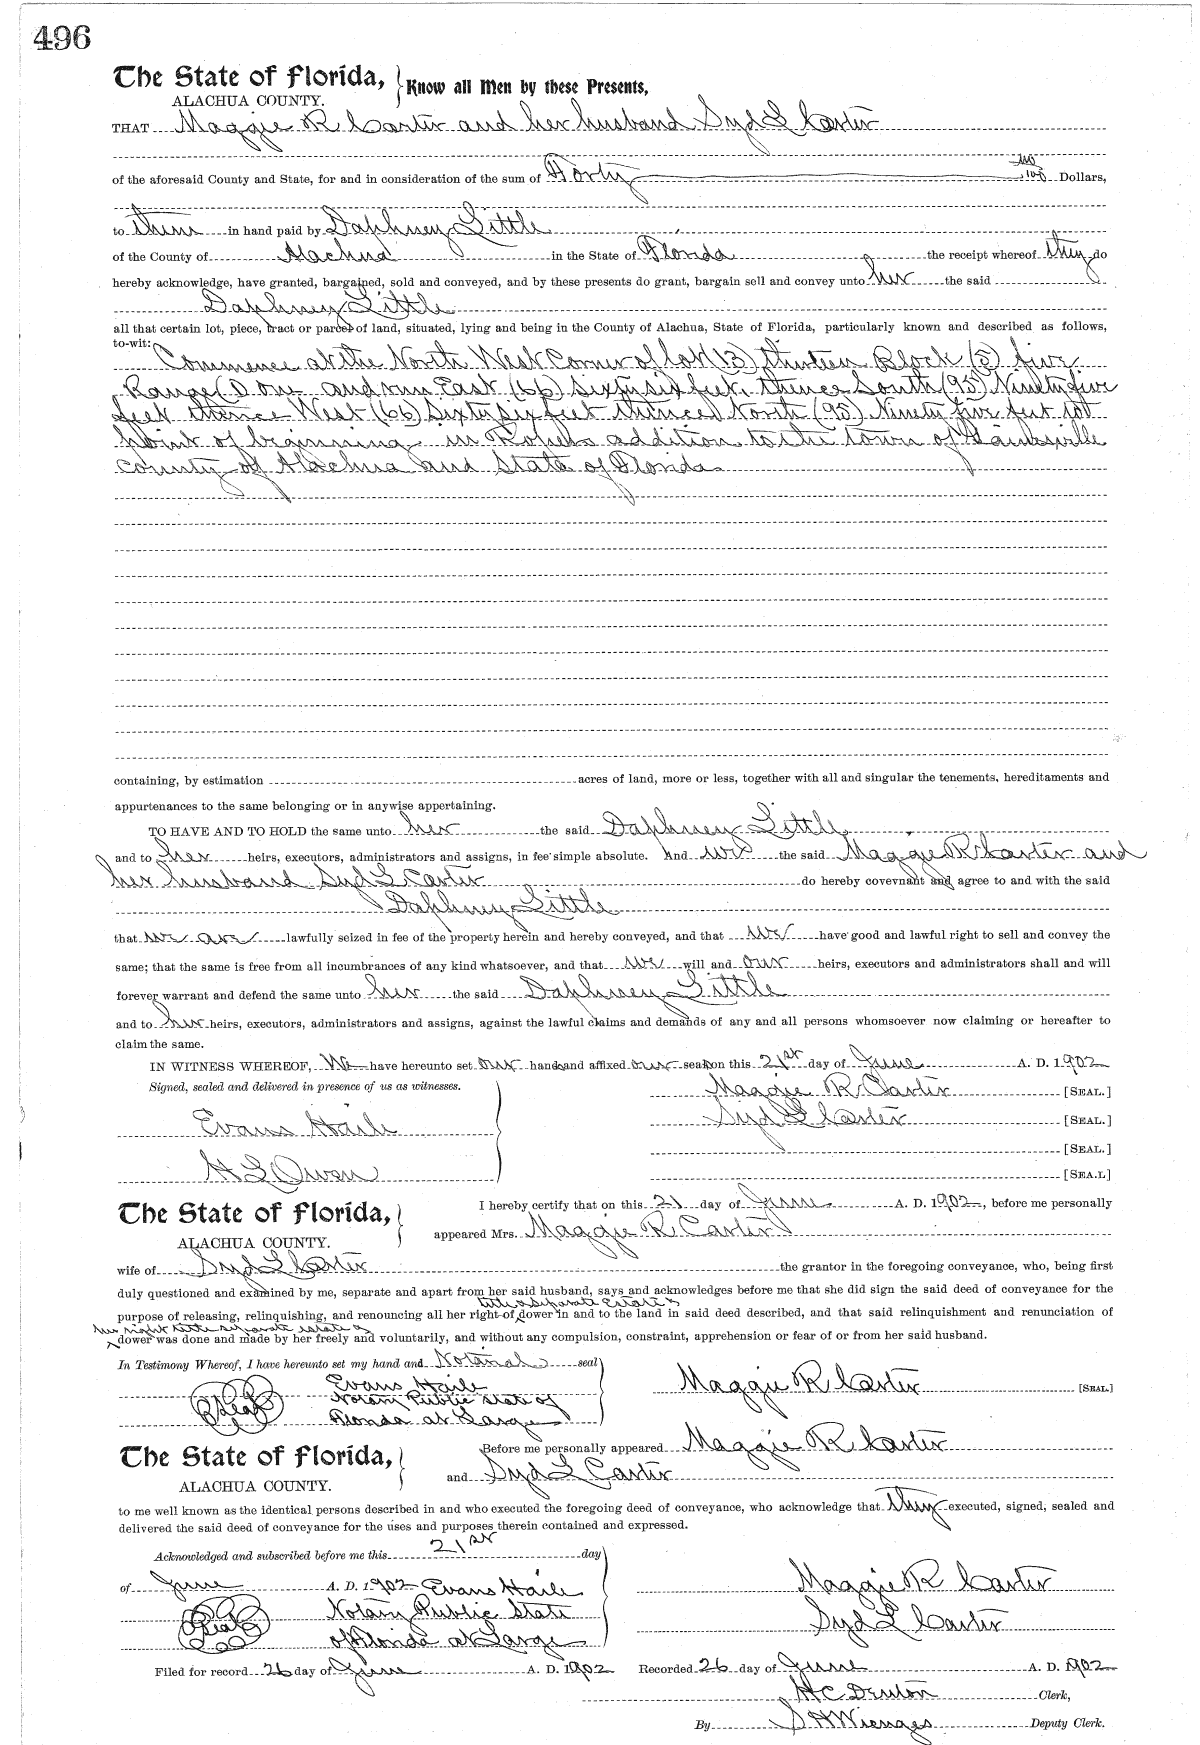 496
The State of Florida, Know all Men by these Presents,
ALACHUA COUNTY.
THAT Maggie R Carter and her husband Syd L Carter
of the aforesaid County and State, for and in consideration of the sum of Forty no/100 Dollars,
to them in hand paid by Daphney Little
of the County of Alachua in the State of Florida the receipt whereof they do
hereby acknowledge, have granted, bargained, sold and conveyed, and by these presents do grant, bargain sell and convey unto her the said
Daphney Little
all that certain lot, piece, tract or parcel of land, situated, lying and being in the County of Alachua, State of Florida, particularly known and described as follows,
to-wit: Commence at the North West Corner of lot (13) thirteen Block (5) five
Range (1) one and run East (66) Sixty six feet, thence South (95) Ninety five
feet thence West (66) Sixty six feet thence North (95) Ninety five feet to
point of beginning in Ropers addition to the town of Gainesville
County of Alachua and State of Florida
containing, by estimation acres of land, more or less, together with all and singular the tenements, hereditaments and
appurtenances to the same belonging or in anywise appertaining.
TO HAVE AND TO HOLD the same unto her the said Daphney Little
and to her heirs, executors, administrators and assigns, in fee simple absolute. And we the said Maggie R Carter and
her husband Syd L Carter do hereby covevnant and agree to and with the said
Daphney Little
that we are lawfully seized in fee of the property herein and hereby conveyed, and that we have good and lawful right to sell and convey the
same; that the same is free from all incumbrances of any kind whatsoever, and that we will and our heirs, executors and administrators shall and will
forever warrant and defend the same unto her the said Daphney Little
and to her heirs, executors, administrators and assigns, against the lawful claims and demands of any and all persons whomsoever now claiming or hereafter to
claim the same.
IN WITNESS WHEREOF, We have hereunto set our hands and affixed our seals on this 21st day of June A. D. 1902
Signed, sealed and delivered in presence of us as witnesses. Maggie R Carter [SEAL.]
Syd L Carter [SEAL.]
Evans Haile
[SEAL.]
H L Owen [SEA.L]
The State of Florida, I hereby certify that on this 21 day of June A. D. 1902, before me personally
ALACHUA COUNTY. appeared Mrs. Maggie R Carter
wife of Syd L Carter the grantor in the foregoing conveyance, who, being first
duly questioned and examined by me, separate and apart from her said husband, says and acknowledges before me that she did sign the said deed of conveyance for the
title & separate Estate &
purpose of releasing, relinquishing, and renouncing all her right of dower in and to the land in said deed described, and that said relinquishment and renunciation of
her right title separate estate &
dower was done and made by her freely and voluntarily, and without any compulsion, constraint, apprehension or fear of or from her said husband.
In Testimony Whereof, I have hereunto set my hand and Notarial seal
Evans Haile Maggie R Carter [SEAL]
Seal Notary Public State of
Florida at Large
The State of Florida, Before me personally appeared Maggie R Carter
ALACHUA COUNTY. and Syd L Carter
to me well known as the identical persons described in and who executed the foregoing deed of conveyance, who acknowledge that they executed, signed, sealed and
delivered the said deed of conveyance for the uses and purposes therein contained and expressed.
Acknowledged and subscribed before me this 21st day
of June A. D. 1902 Evans Haile Maggie R Carter
Seal Notary Public State Syd L Carter
of Florida at Large
Filed for record 26 day of June A. D. 1902 Recorded 26 day of June A. D. 1902
H C Denton Clerk,
By S H Wienges Deputy Clerk.